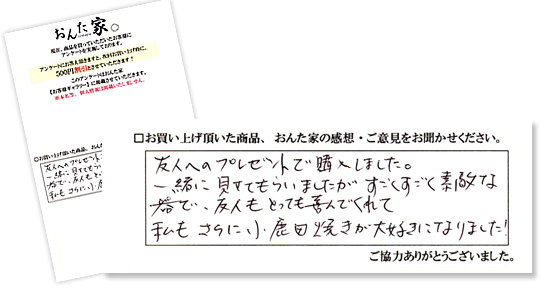 おんた家。
現在、商品を買っていただいたお客様に
アンケートを実施しております。
アンケートにお答え頂きますと、次回お買い上げ時に、
500円割引とさせていただきます！
このアンケートはおんた家、
【お客様ギャラリー】に掲載させていただきます。
□お買い上げ頂いた商品、おんた
友人へのプレゼントで購
一緒に見てもらいました
器で、友人もとっ
私もさらに小鹿
□お買い上げ頂いた商品、おんた家の感想・ご意見をお聞かせください。
友人へのプレゼントで購入しました。
一緒に見てもらいましたがすごくすごく素敵な
器で、友人もとっても喜んでくれて
私もさらに小鹿田焼きが大好きになりました!
ご協力ありがとうございました。